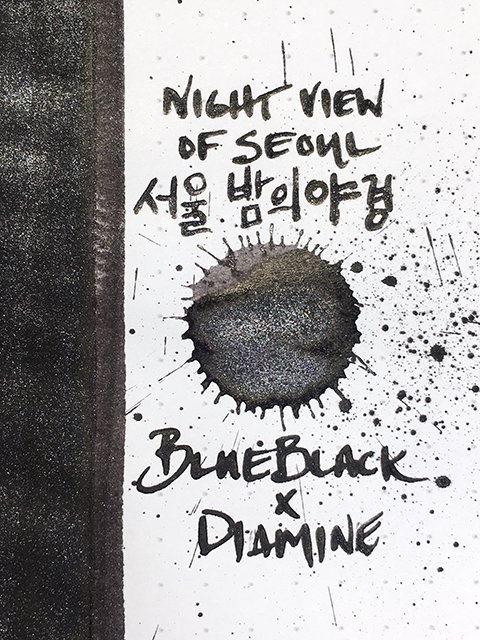 NIGHT VIEW
OF SEOUL
서울 밤의야경
BLUEBLACK
x
DIAMINE